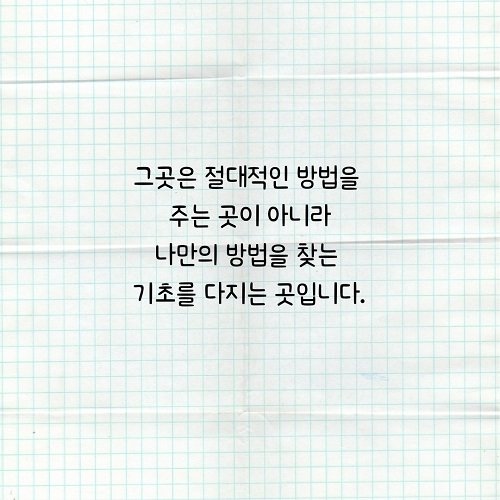 그곳은 절대적인 방법을
주는 곳이 아니라
나만의 방법을 찾는
기초를 다지는 곳입니다.